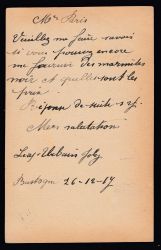 Mr Paris
Veuillez me faire savoir
si vous pouvez encore
me fournir des marmites
noir et quelles sont les
prix.
Réponse de suite s.v.p.
Mes salutations
Bastogne 26-12-17